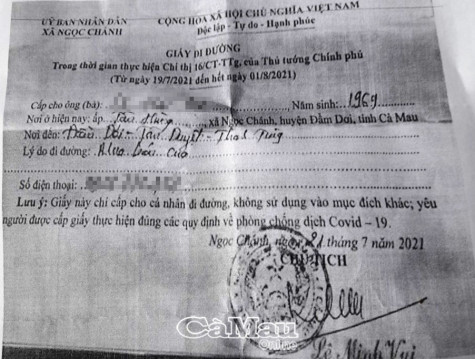 ỦY BAN NHÂN DÂN
XÃ NGỌC CHÁNH
CỘNG HÒA XÃ HỘI CHỦ NGHĨA VIỆT NAM
Độc lập - Tự do - Hạnh phúc
GIẤY ĐI ĐƯỜNG
Trong thời gian thực hiện Chỉ thị 16/CT-TTg, của Thủ tướng Chính phủ
(Từ ngày 19/7/2021 đến hết ngày 01/8/2021)
Cấp cho ông (bà): , Năm sinh: 1969
Nơi ở hiện nay: ấp. Tân Hùng, xã Ngọc Chánh, huyện Đầm Dơi, tỉnh Cà Mau
Nơi đến: Đầm Dơi - Tân Duyệt - Thanh Tùng
Lý do đi đường: Mua bán cua
Số điện thoại:
Lưu ý: Giấy này chỉ cấp cho cá nhân đi đường, không sử dụng vào mục đích khác; yêu
người được cấp giấy thực hiện đúng các quy định về phòng chống dịch Covid – 19.
Ngọc Chánh, ngày 21 tháng 7 năm 2021
CHỦ TỊCH
CàMau
Online
Lê Minh Vui